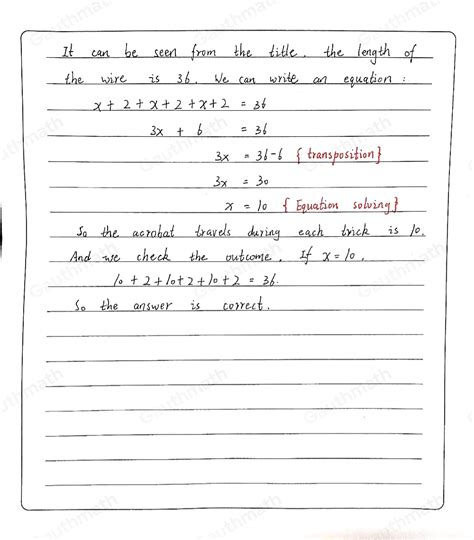 It can be seen from the title, the length of
the wire is 36. We can write an equation :
x + 2 + x + 2 + x + 2 = 36
3x + 6 = 36
3x = 36-6 { transposition }
3x = 30
x = 10 { Equation solving }
So the acrobat travels during each trick is 10.
And we check the outcome. If x = 10,
10 + 2 + 10 + 2 + 10 + 2 = 36.
So the answer is correct.
Gauthmath